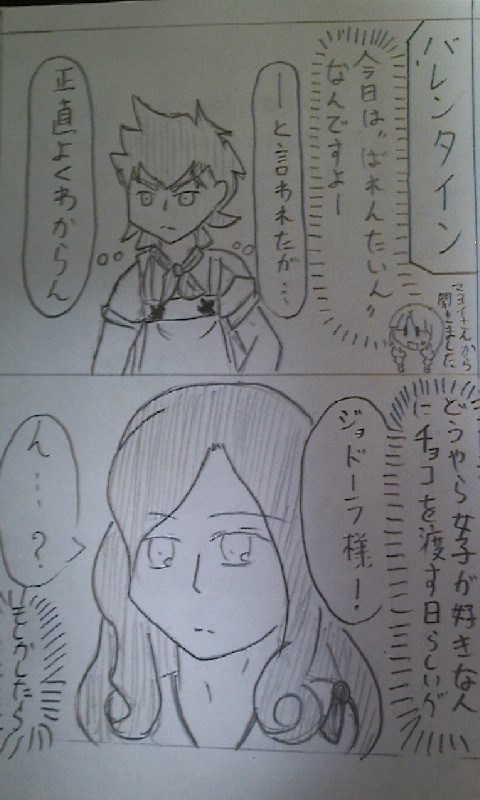 バレンタイン
今日は"ばれんたいん"
なんですよー
マヨイさんから
聞きました
ーと言われたが…
正直よくわからん
どうやら女子が好きな人
にチョコを渡す日らしいが
ジョドーラ様!
ん…?
もしかしたら